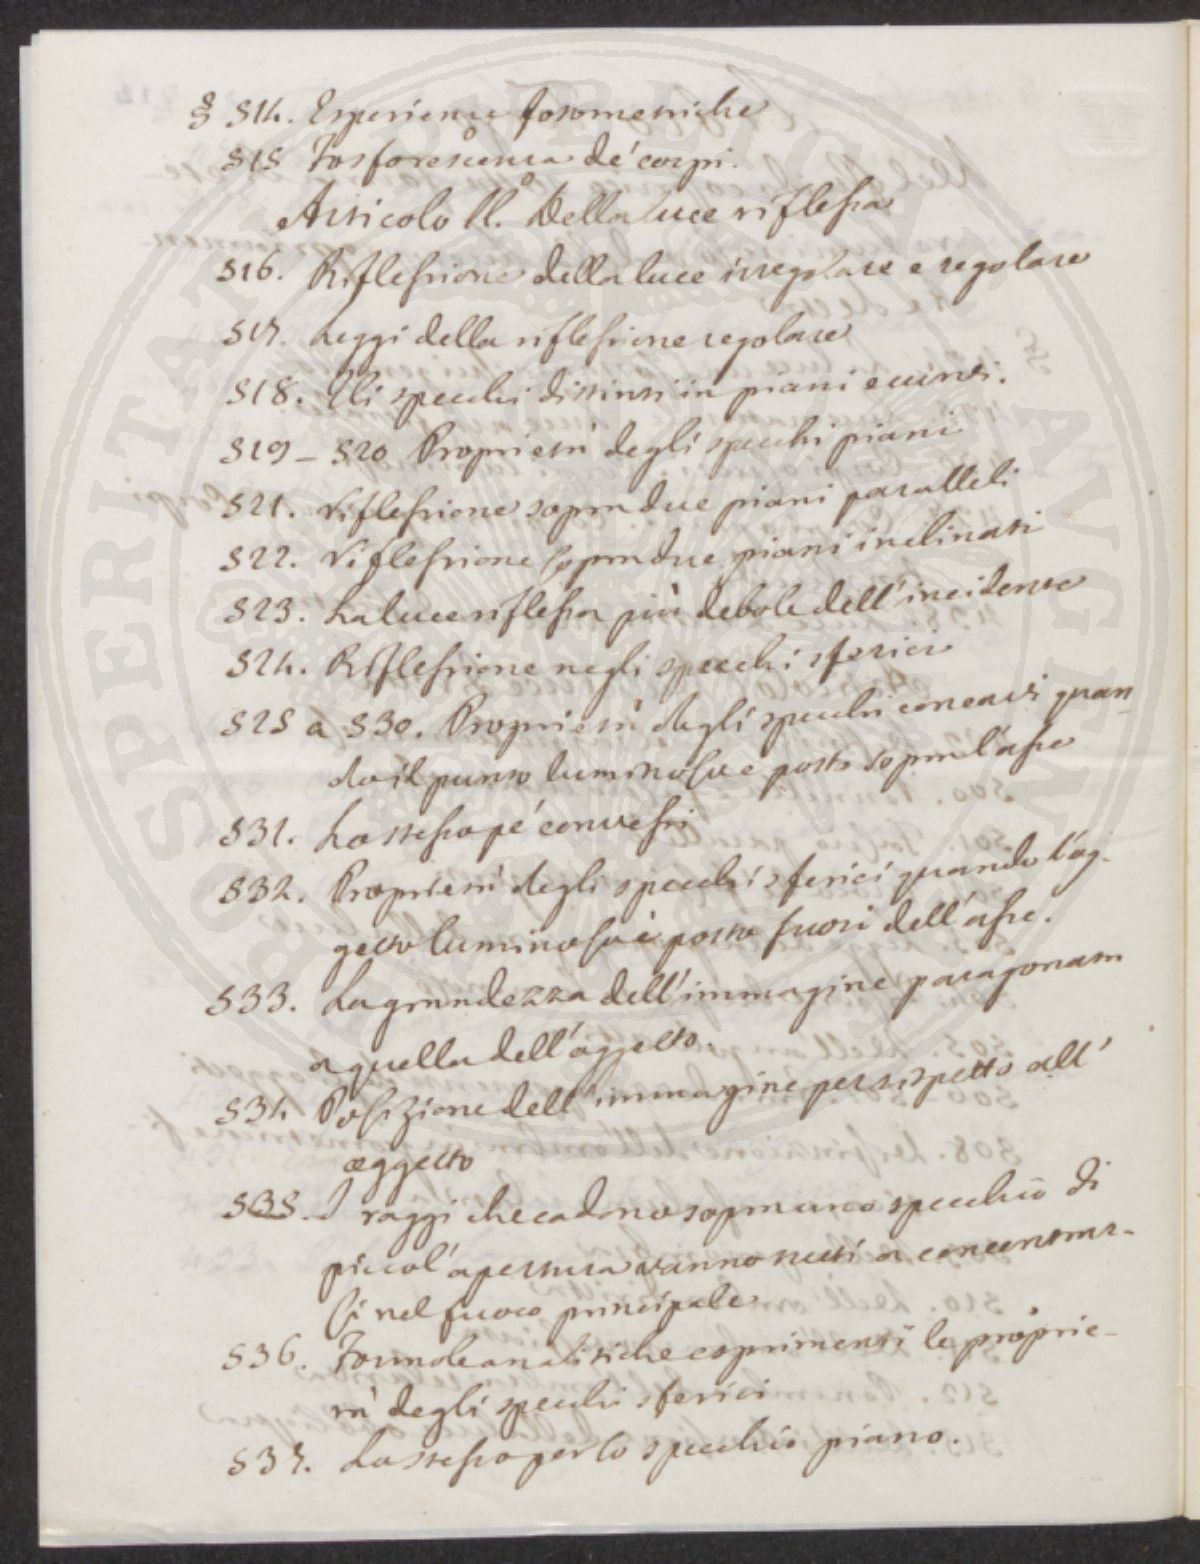 § 514. Esperienze fotometriche
515 Fosforescenza de' corpi.
Articolo II.° Della luce riflessa
516. Riflessione della luce irregolare e regolare
517. Leggi della riflessione regolare
518. Gli specchi distinti in piani e curvi.
519 – 520 Proprietà degli specchi piani
521. Riflessione sopra due piani paralleli
522. Riflessione sopra due piani inclinati
523. La luce riflessa più debole dell'incidente
524. Riflessione negli specchi sferici
525 a 530. Proprietà degli specchi concavi quan
do il punto luminoso è posto sopra l'asse
531. Lo stesso pe' convessi
532. Proprietà degli specchi sferici quando l'og-
getto luminoso è posto fuori dell'asse.
533. La grandezza dell'immagine paragonata
a quella dell'oggetto.
534 Posizione dell'immagine per rispetto all'
oggetto
535. I raggi che cadono sopra uno specchio di
piccol'apertura vanno tutti a concentrar-
si nel fuoco principale
536. Formole analitiche esprimenti le proprie-
tà degli specchi sferici
537. Lo stesso per lo specchio piano.